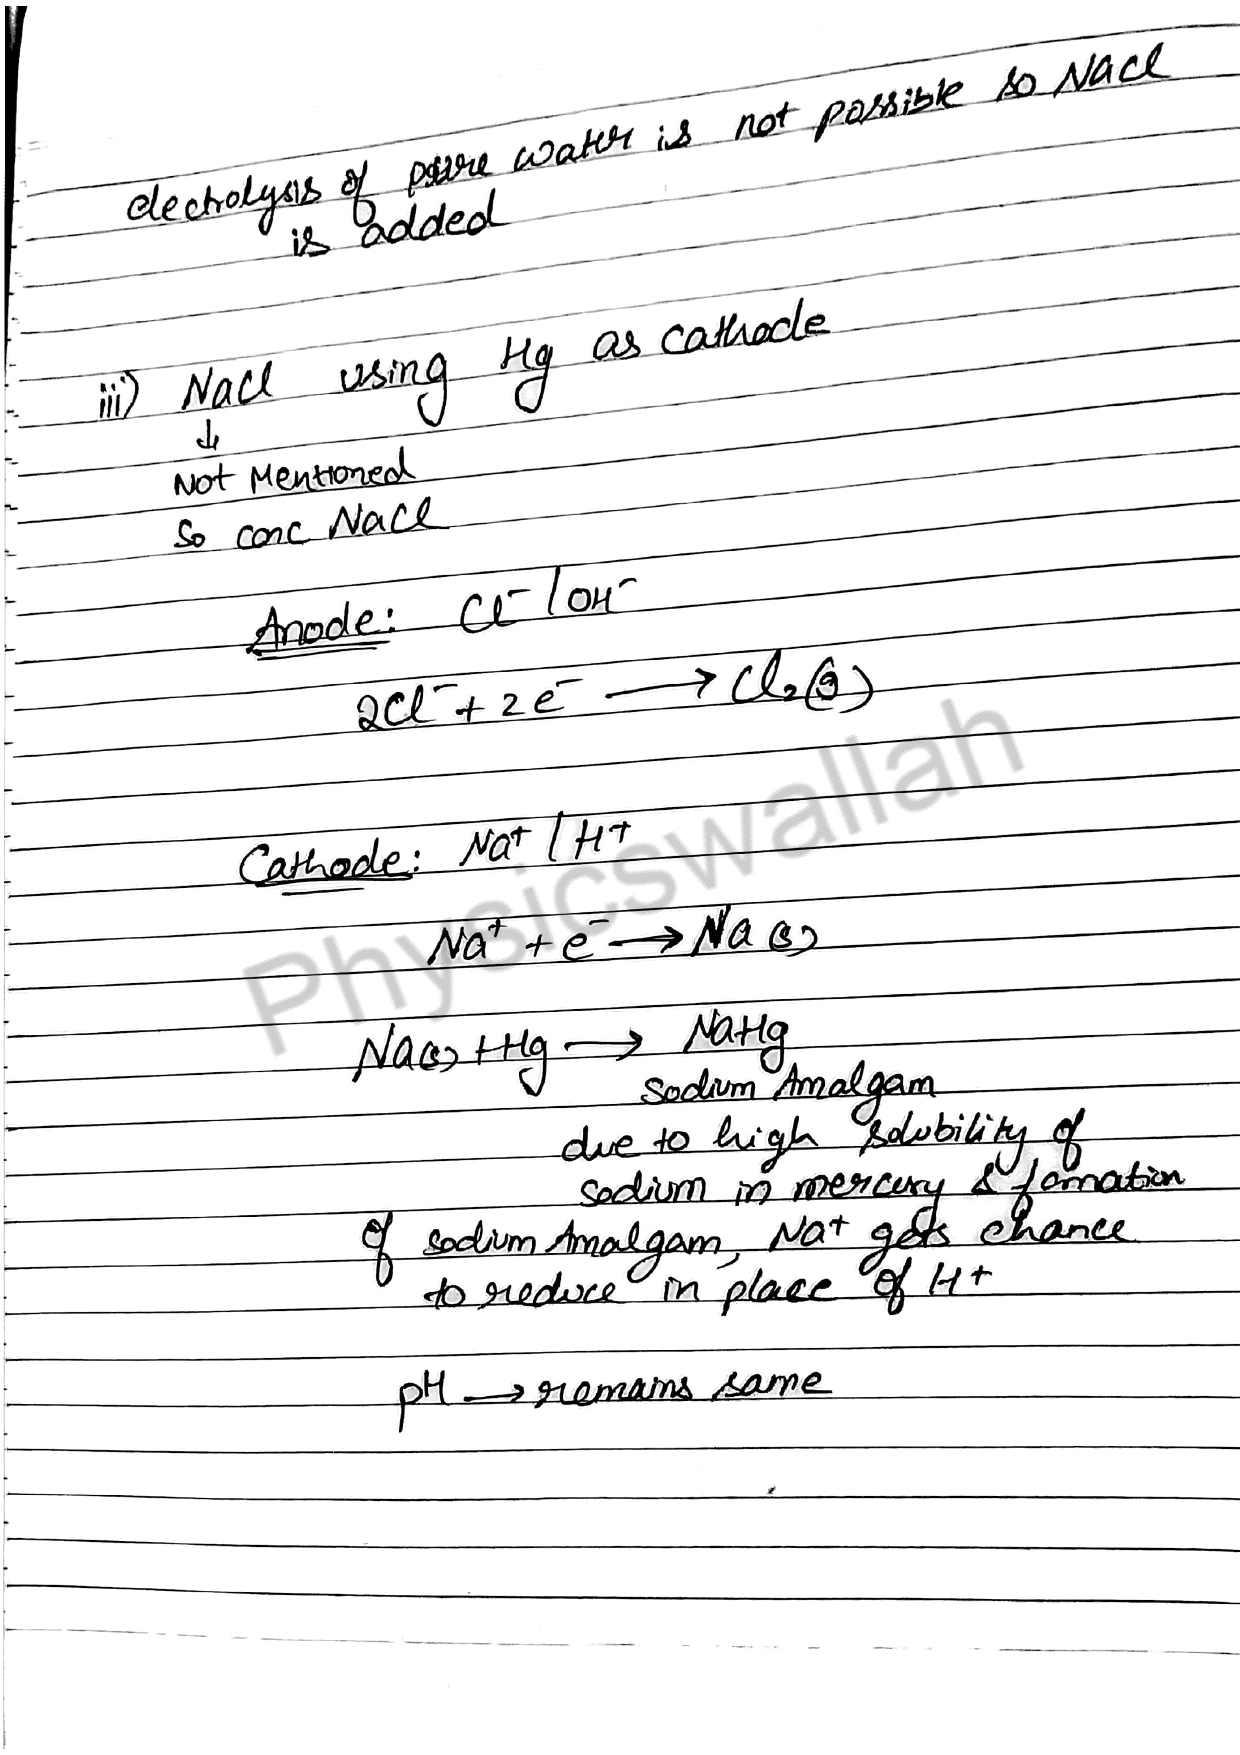 electrolysis of pure water is not possible so NaCl
is added
iii) NaCl using Hg as cathode
↓
Not Mentioned
So conc NaCl
Anode: Cl⁻ / OH⁻
2Cl⁻ + 2e⁻ ⟶ Cl₂(g)
Cathode: Na⁺ / H⁺
Na⁺ + e⁻ ⟶ Na(s)
Na(s) + Hg ⟶ NaHg
Sodium Amalgam
due to high solubility of
sodium in mercury & formation
of sodium Amalgam, Na⁺ gets chance
to reduce in place of H⁺
pH ⟶ remains same
Physicswallah